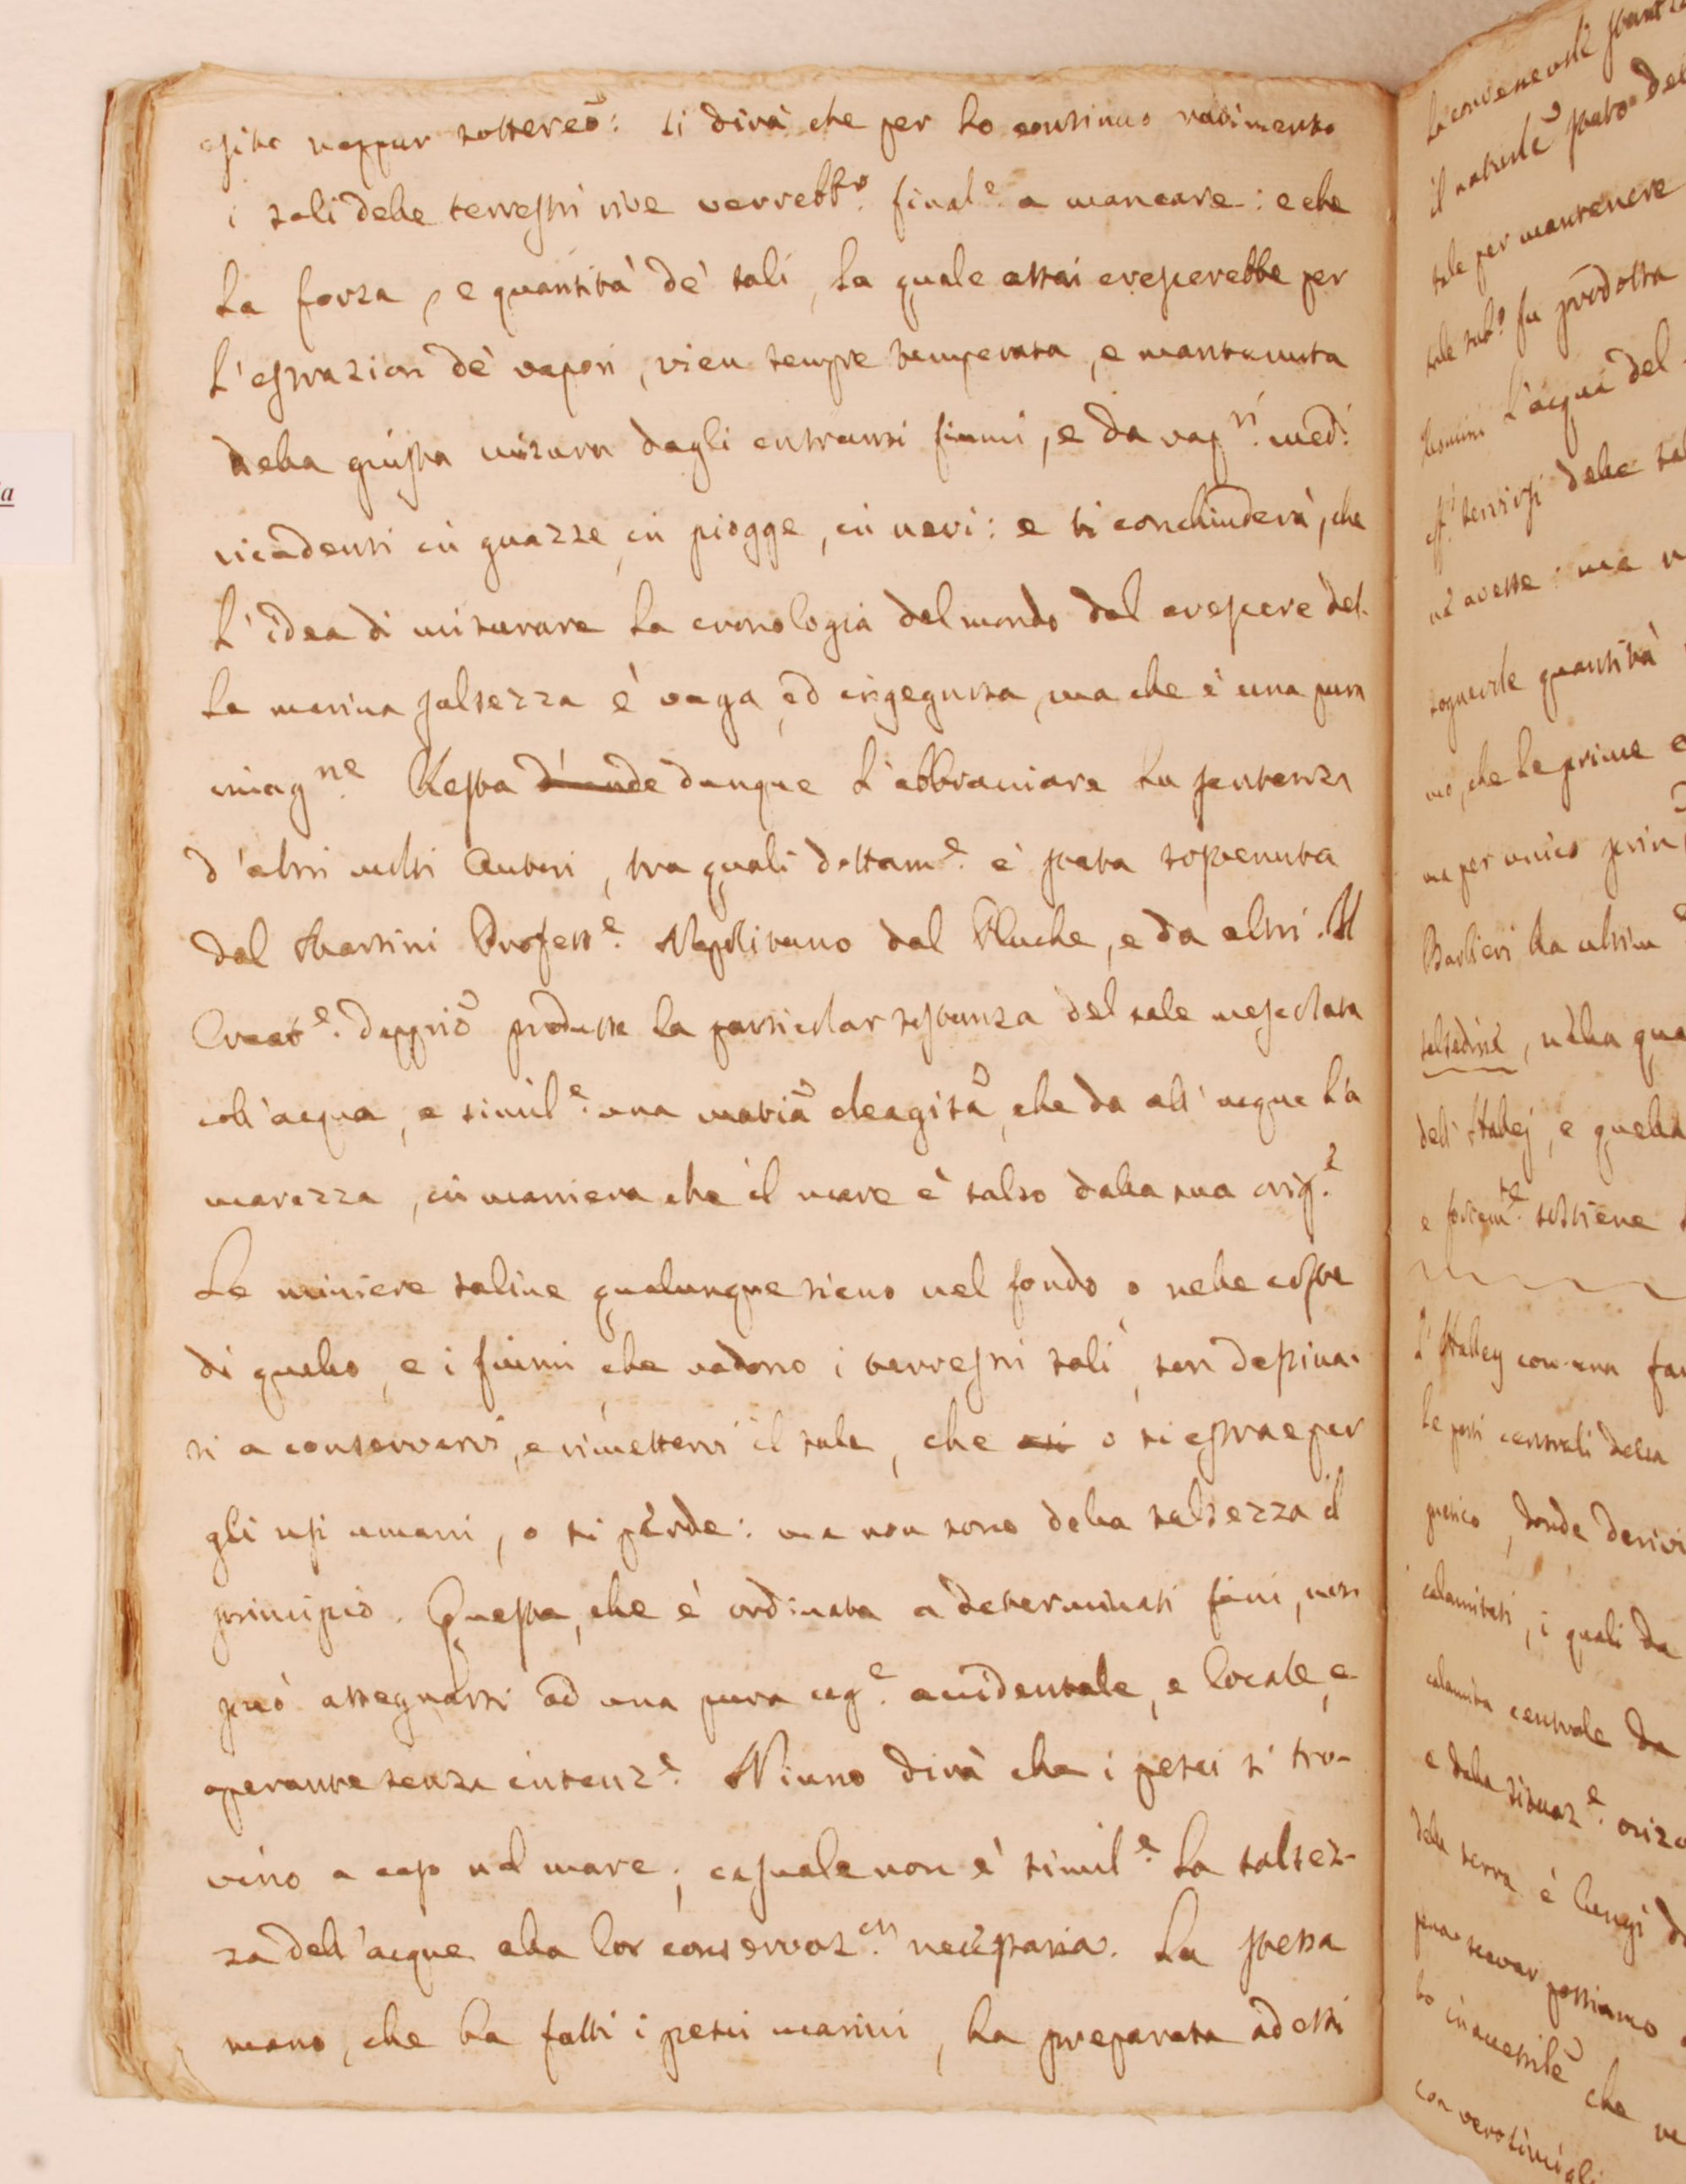 esito neppur sottereo: si dirà che per lo continuo radimento
i sali delle terrestri rive verrebbo. final.e a mancare: e che
la forza, e quantità de' sali, la quale assai crescerebbe per
l'estrazion de' vapori, vien sempre temperata, e mantenuta
nella giusta misura dagli entranti fiumi, e da vap.ri med.i
ricadenti in guazze, in piogge, in nevi: e si conchiuderà, che
l'idea di misurare la cronologia del mondo dal crescere del-
la marina salsezza è vaga, ed ingegnosa, ma che è una pura
imag.ne Resta dunque l'abbracciare la sentenza
d'altri molti Autori, tra quali dottam.e è stata sostenuta
dal Martini Profess.e Napolitano dal Pluche, e da altri. Il
Creat.e dapprio produsse la particolar sostanza del sale mescolata
coll'acqua, e simil.e una matia che da all'acque l'a
marezza, in maniera che il mare è salso dalla sua orig.e
Le miniere saline qualunque sieno nel fondo, o nelle coste
di quello, e i fiumi, che radono i terrestri sali, son destina-
ti a conservarvi, e rimettervi il sale, che o si estrae per
gli usi umani, o si perde: ma non sono della salsezza il
principio. Questa, che è ordinata a determinati fini, non
può assegnarsi ad una pura cag.e accidentale, e locale, e
operante senza intenz.e Niuno dirà che i pesci si tro-
vino a caso nel mare; casuale non è simil.e la salsez-
za dell'acque alla lor conservaz.on necessaria. La stessa
mano, che ha fatti i pesci marini, ha preparata ad essi
il
tale per mantenere
fu prodotta
l'acqua del
delle
n'avesse: ma
quantità
che le prime e
ma per unico prin
Barbieri la
salsedine, nella qua
dell'Halley, e quella
e sostiene
L'Halley con una
le parti centrali della
donde derivi
calamitati, i quali da
calamita centrale da
e dalla situaz.e
della terra è lungi
possiamo
lo che
con